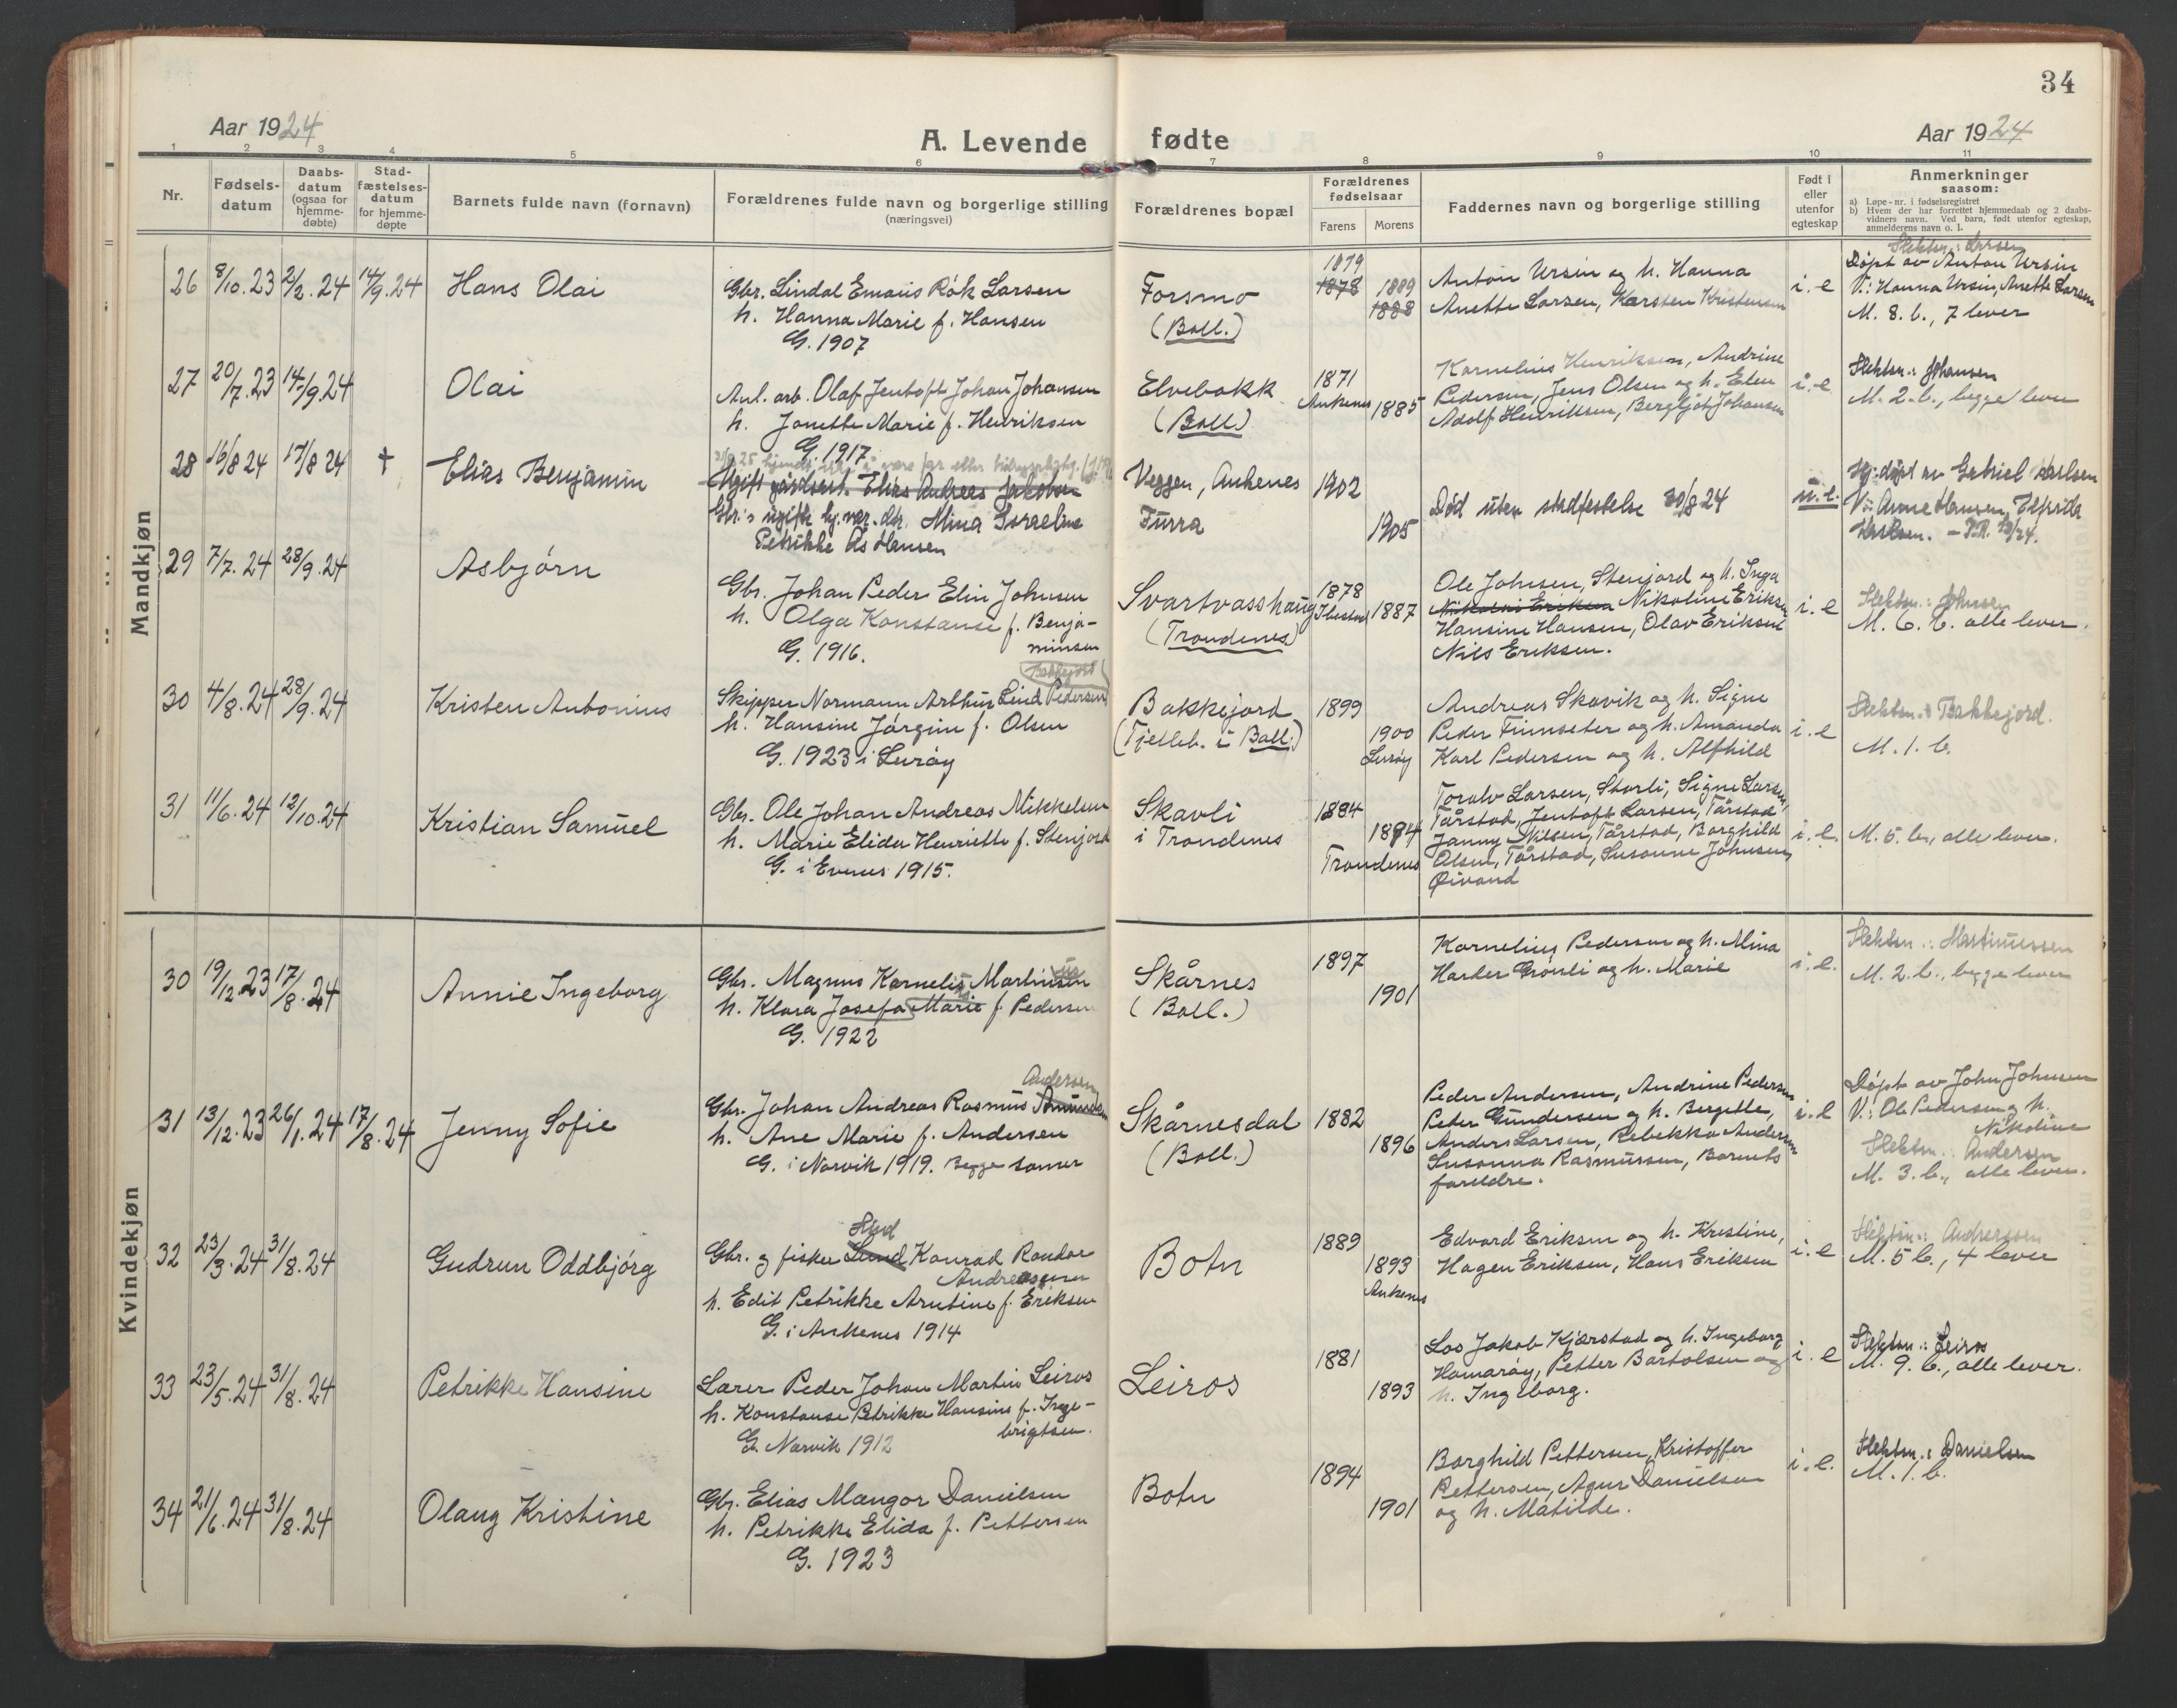 34
Aar 1924
A. Levende fødte
Aar 1924
1 2 3 4 5 6 7 8 9 10 11
Nr.
Fødsels-
datum
Daabs-
datum
(ogsaa for
hjemme-
døbte)
Stad-
fæstelses-
datum
for hjemme-
døpte
Barnets fulde navn (fornavn)
Forældrenes fulde navn og borgerlige stilling
(næringsvei)
Forældrenes bopæl
Forældrenes
fødselsaar
Farens Morens
Faddernes navn og borgerlige stilling
Født i
eller
utenfor
egteskap
Anmerkninger
saasom:
a) Løpe-nr. i fødselsregistret
b) Hvem der har forrettet hjemmedaab og 2 daabs-
vidners navn. Ved barn, født utenfor egteskap,
anmelderens navn o. l.
Mandkjøn
26 8/10.23 2/2.24 14/9.24 Hans Olai
Gbr. Lindal Emaus Røk Larsen
h. Hanna Marie f. Hansen
G. 1907
Forsmo
(Ball.)
1879
1878 1889
1888
Anton Ursin og h. Hanna
Anette Larsen, Karsten Kristensen
i. e
Slektsn.: Larsen
Døpt av Anton Ursin
V.: Hanna Ursin, Anette Larsen
M. 8. b., 7 lever
27 20/7.23 14/9.24 Olai
Anl. arb. Olaf Jentoft Johan Johansen
h. Janette Marie f. Henriksen
G. 1917
Elvebakk
(Ball)
1871
Ankenes 1885
Kornelius Henriksen, Andrine
Pedersen, Jens Olsen og h. Elen
Adolf Henriksen, Bergljot Johansen
i. e
Slektsn.: Johansen
M. 2. b., begge lever
28 16/8 24 17/8 24 † Elias Benjamin
Ugift gårdsarb. Elias Andreas Jakobsen
Gbr.'s ugifte hj.vær. dtr. Mina Israeline
Petrikke As Hansen
Veggen, Ankenes
Furra
1902
1905
Død uten stadfestelse 30/8 24
u. e.
Hj. døpt av Gabriel Karlsen
V.: Anne Hansen, Elfrida
Karlsen.
29 7/7.24 28/9.24 Asbjørn
Gbr. Johan Peder Elin Johnsen
h. Olga Konstanse f. Benja-
minsen
G. 1916.
Svartvasshaug
(Trondenes)
1878
Ibestad 1887
Ole Johnsen, Stenjord og h. Inga
Nikoline Eriksen
Hansine Hansen, Olav Eriksen
Nils Eriksen.
i. e
Slektsn.: Johnsen
M. 6. b. alle lever.
30 4/8.24 28/9.24 Kristen Antonius
Bakkejord
Skipper Normann Arthur Lind Pedersen
h. Hansine Jørgine f. Olsen
G. 1923 i Lurøy
Bakkejord
(Tjelleb. i Ball.)
1899
1900
Lurøy
Andreas Skavik og h. Signe
Peder Finnseter og h. Amanda
Karl Pedersen og h. Alfhild
i. e
Slektsn.: Bakkejord.
M. 1. b.
31 11/6.24 12/10.24 Kristian Samuel
Gbr. Ole Johan Andreas Mikkelsen
h. Marie Elida Henriette f. Stenjord
G. i Evenes 1915.
Skavli
i Trondenes
1884
1894
Trondenes
Toralv Larsen, Storli, Signe Larsen,
Tårstad, Jentoft Larsen, Tårstad
Janny Nilsen, Tårstad, Borghild
Olsen, Tårstad, Susanne Johnsen,
Øivand
i. e.
M. 5. b., alle lever.
Kvindekjøn
30 19/12.23 17/8.24 Annie Ingeborg
Gbr. Magnus Kornelis Martinsen
h. Klara Josefa Marie f. Pedersen
G. 1922
Skårnes
(Ball.)
1897
1901
Kornelius Pedersen og h. Mina
Harder Grönli og h. Marie
i. e.
Slektsn.: Martinussen
M. 2. b., begge lever
31 13/12.23 26/1.24 17/8.24 Jenny Sofie
Andersen
Gbr. Johan Andreas Rasmus
h. Ane Marie f. Andersen
G. i Narvik 1919. Begge samer
Skårnesdal
(Ball.)
1882
1896
Peder Andersen, Andrine Pedersen
Peter Gundersen og h. Bergette,
Anders Larsen, Rebekka Andersen
Susanna Rasmussen, Barnets
foreldre.
i. e
Døpt av John Johnsen
V.: Ole Pedersen og h.
Nikoline
Slektsn.: Andersen
M. 3. b., alle lever.
32 23/3.24 31/8.24 Gudrun Oddbjørg
Gbr. og fisker Lund Konrad Randor
Andreassen
h. Edit Petrikke Arntine f. Eriksen
G. i Ankenes 1914
Botn
1889
1893
Ankenes
Edvard Eriksen og h. Kristine,
Hagen Eriksen, Hans Eriksen
i. e
Slektsn.: Andreassen
M. 5 b., 4 lever
33 23/5.24 31/8.24 Petrikke Hansine
Lærer Peder Johan Martin Leiros
h. Konstanse Petrikke Hansine f. Inge-
brigtsen.
G. Narvik 1912
Leiros
1881
1893
Los Jakob Kjærstad og h. Ingeborg
Hamarøy, Petter Bartolsen og
h. Ingeborg.
i. e
Slektsn.: Leiros
M. 9. b., alle lever.
34 21/6.24 31/8.24 Olaug Kristine
Gbr. Elias Mangor Danielsen
h. Petrikke Elida f. Pettersen
G. 1923
Botn
1894
1901
Borghild Pettersen, Kristoffer
Pettersen, Agnr Danielsen
og h. Matilde.
i. e.
Slektsn.: Danielsen
M. 1. b.